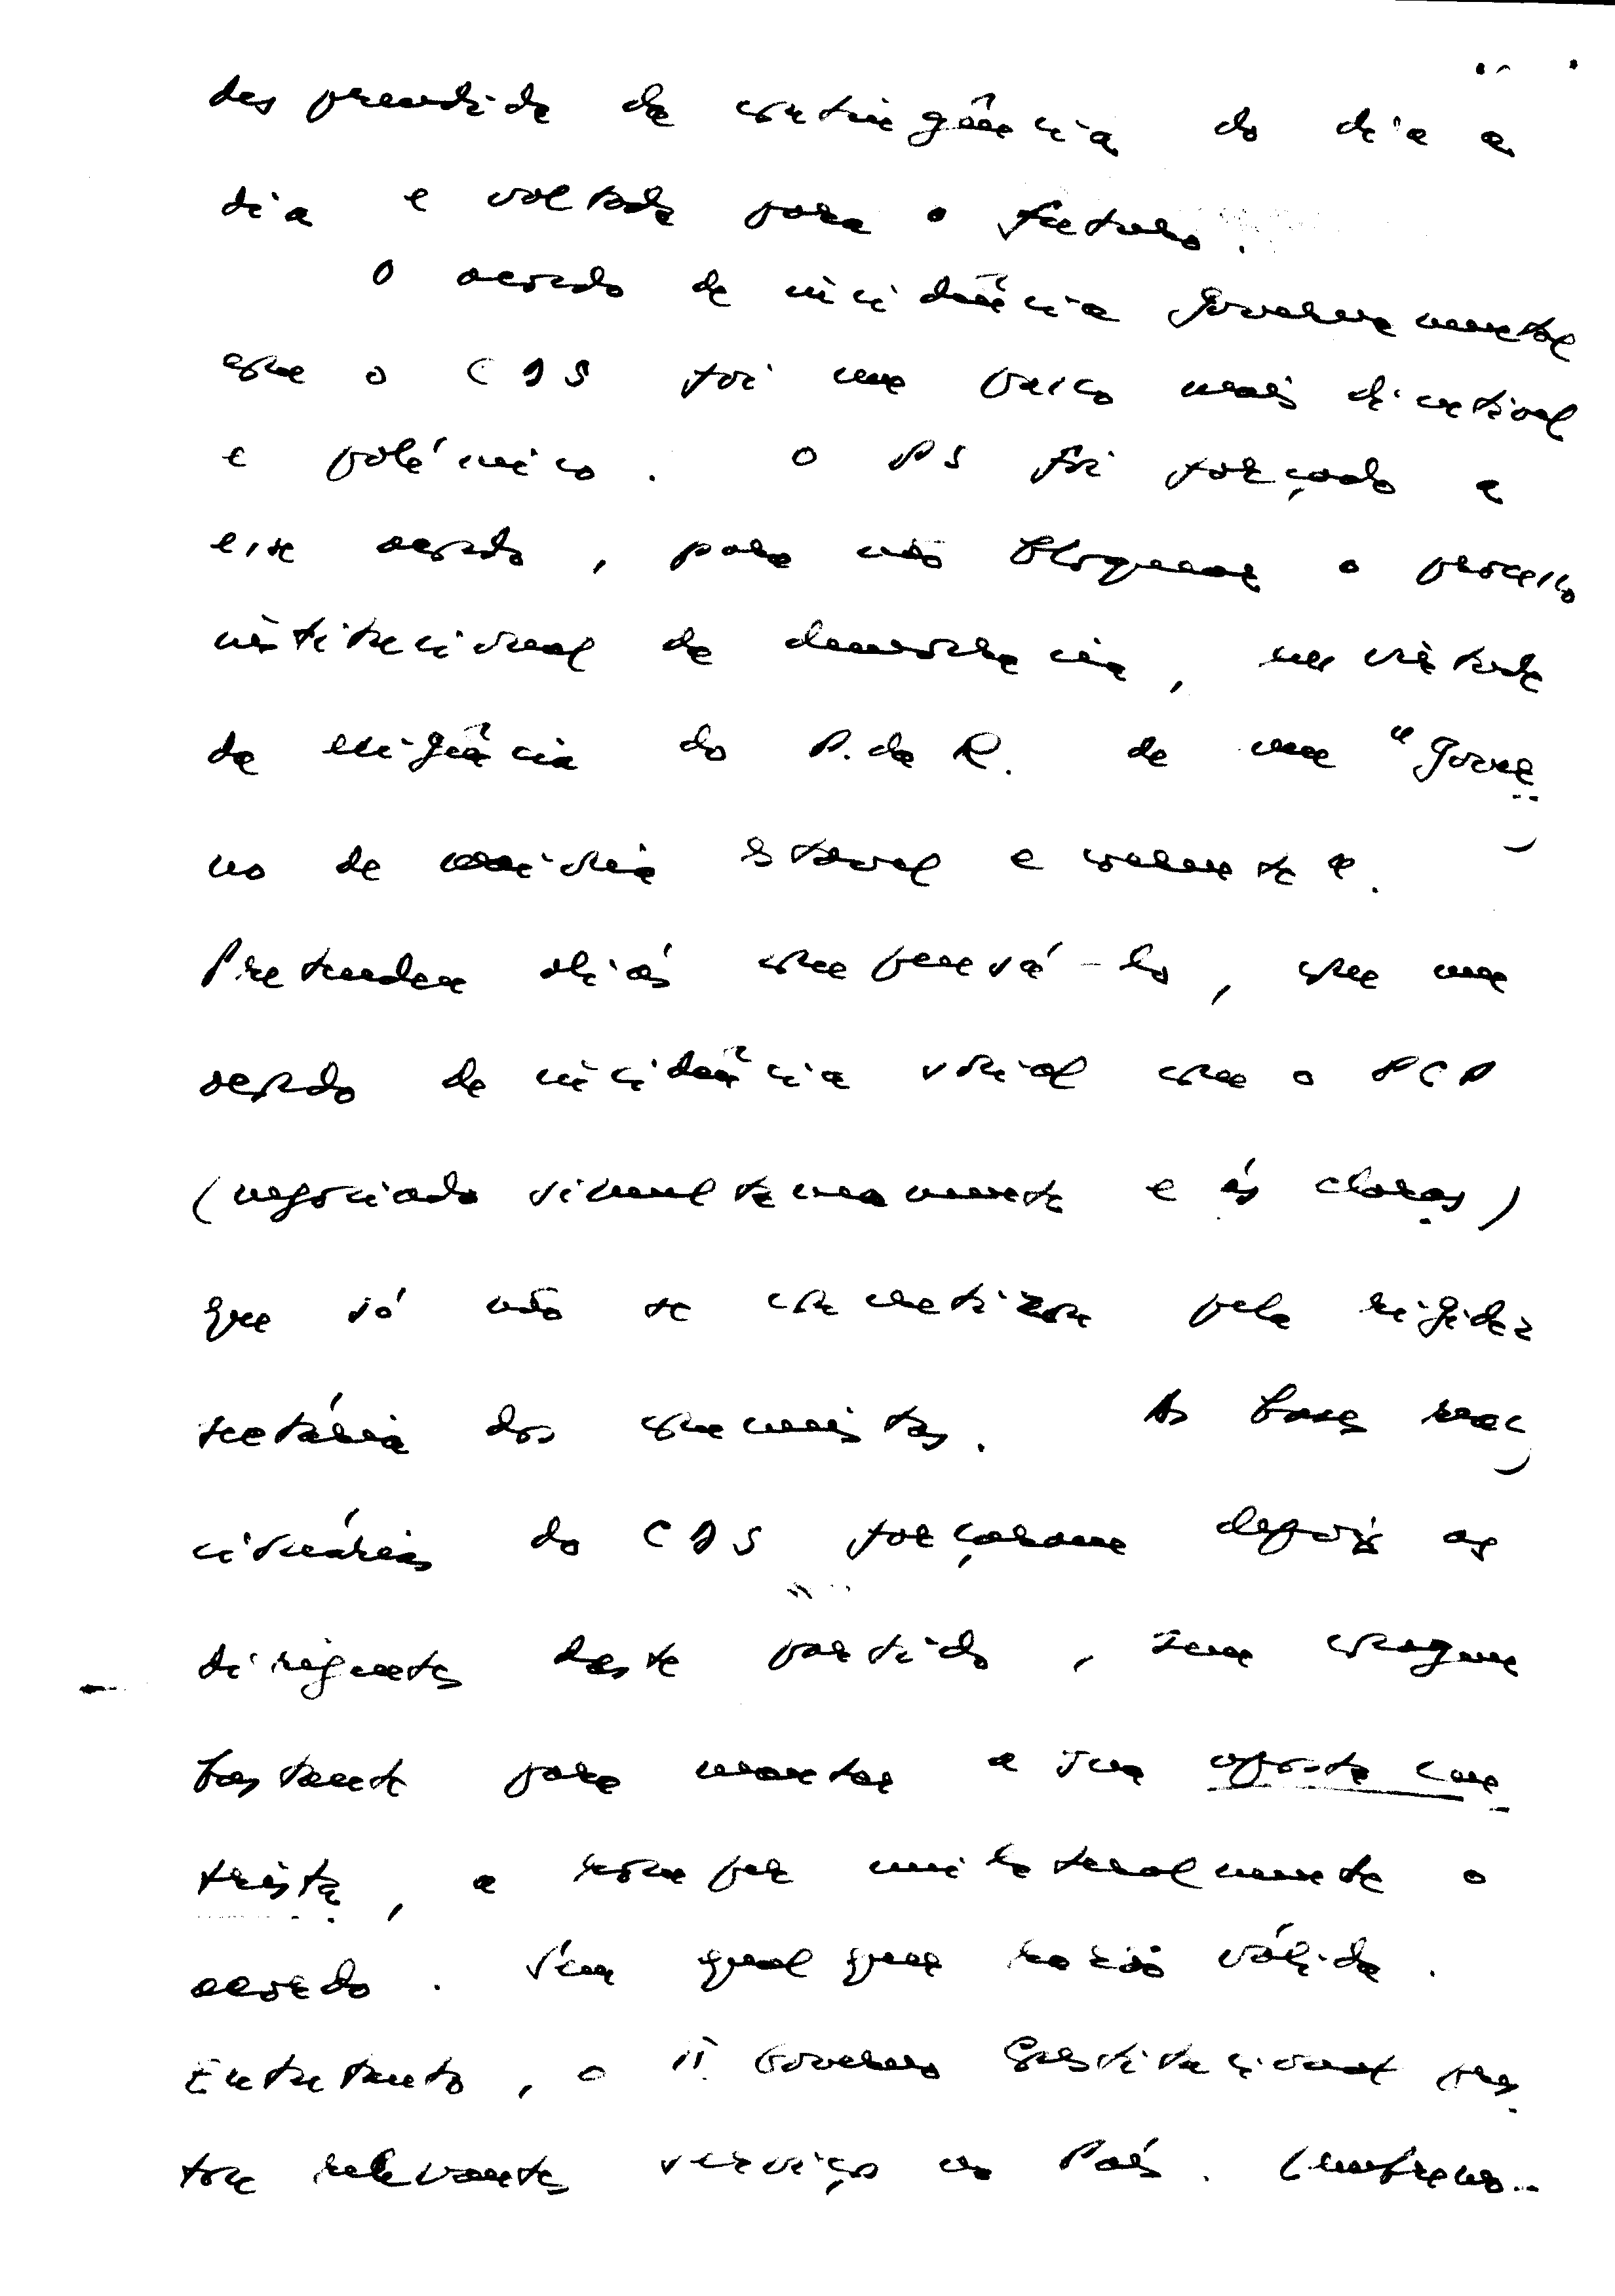 desprendida da contingência do dia a
dia e voltada para o futuro.
O acordo de incidência governamental
com o CDS foi um pouco mais discutível
e polémico. O PS foi forçado a
esse acordo, para não bloquear o processo
institucional da democracia, em virtude
da exigência do P. da R. de um "Gover
no de maioria estável e coerente".
Pretendeu aliás compensá-lo, com um
acordo de incidência social com o PCP
(negociado simultaneamente e às claras)
que só não se concretizou pela rigidez
sectária dos comunistas. As bases reac
cionárias do CDS forçaram depois os
dirigentes deste partido, sem coragem
bastante para manter a sua aposta cen
trista, a romper unilateralmente o
acordo. Sem qualquer razão válida.
Entretanto, o II Governo Constitucional pres
tou relevantes serviços ao País. Lembremo-